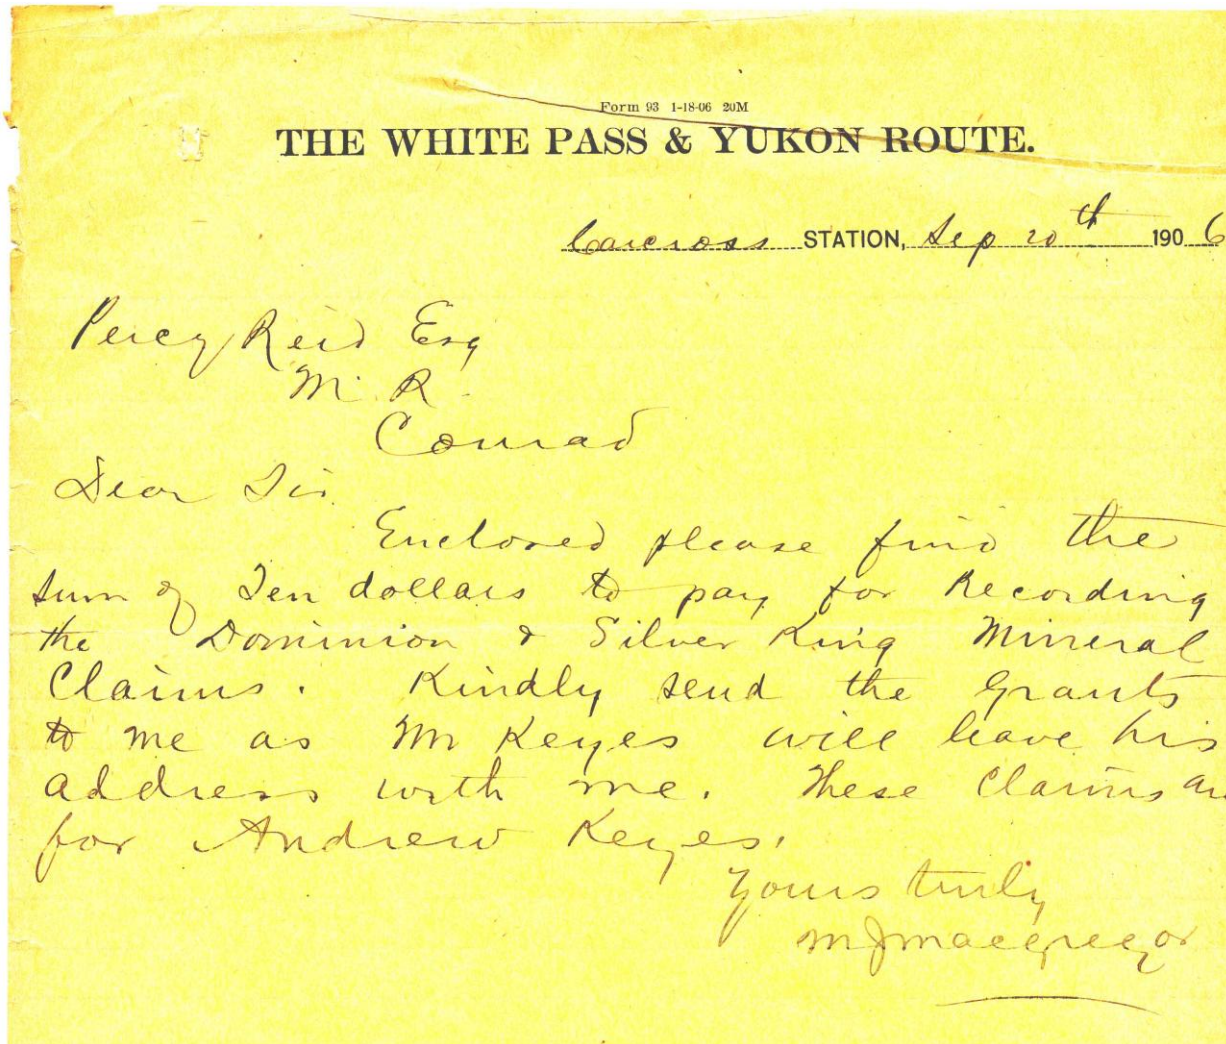 Form 93 1-18-06 20M
THE WHITE PASS & YUKON ROUTE.
Carcross STATION, Sep 20th 1906
Percy Reid Esq
M. R.
Conrad
Dear Sir
Enclosed please find the
sum of Ten dollars to pay for Recording
the Dominion & Silver King Mineral
Claims. Kindly send the Grants
to me as Mr Keyes will leave his
address with me. These Claims are
for Andrew Keyes.
Yours truly
M J Macgregor